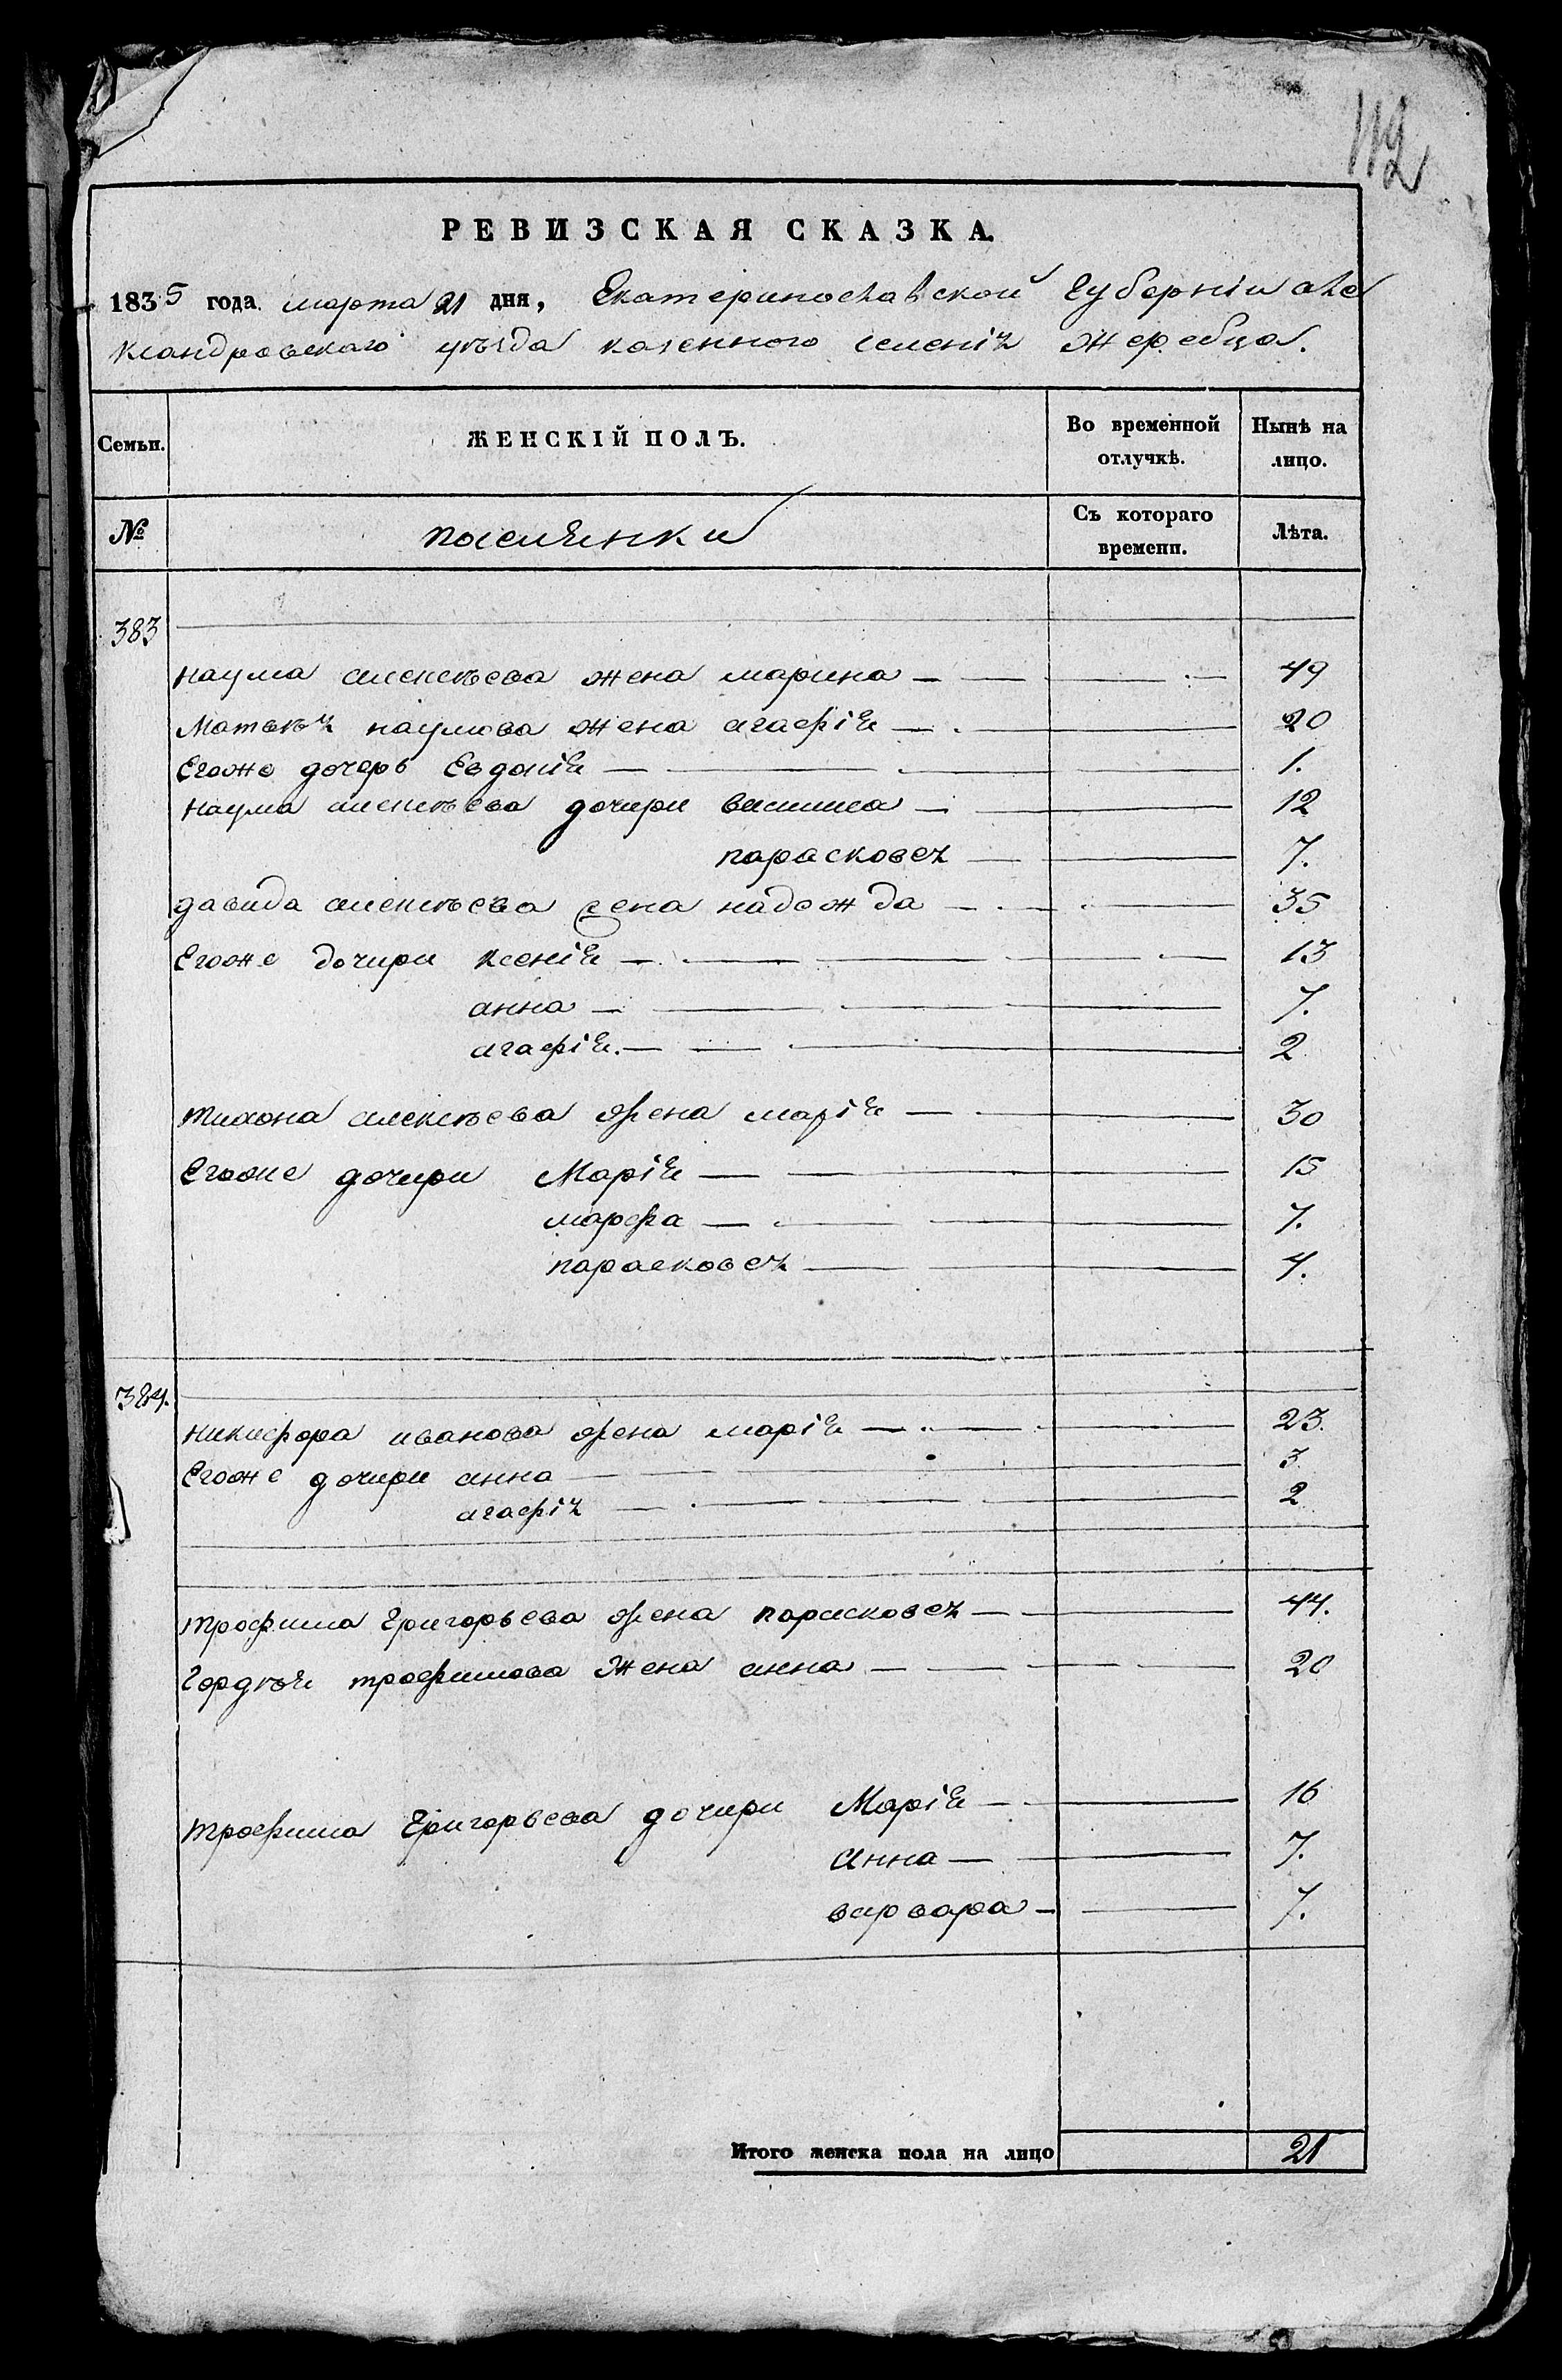 112
РЕВИЗСКАЯ СКАЗКА.
1835 года марта 21 дня, Екатеринославской Губерніи Але
ксандровскаго уѣзда казенного селенія Жеребца.
Семьи. ЖЕНСКІЙ ПОЛЪ. Во временной отлучкѣ. Ныне на лицо.
№ поселянки Съ котораго времени. Лѣта.
383
наума алексѣева жена марина — 49
Матвѣя наумова жена агафія — 20
Егоже дочерь Евдокія — 1.
наума алексѣева дочери васииса — 12
парасковея — 7.
давида алексѣева жена надежда — 35
Егоже дочери ксенія — 13
анна — 7.
агафія. — 2
тихона алексѣева жена марія — 30
Егоже дочери Марія — 15
марфа — 7.
парасковея — 4.
384.
никифора иванова жена марія — 23.
Егоже дочери анна — 3
агафія — 2
трофима Григорьева жена парасковея — 44.
Гордѣя трофимова жена анна — 20
трофима Григорьева дочери Марія — 16
Анна — 7.
варвара — 7.
Итого женска пола на лицо 21